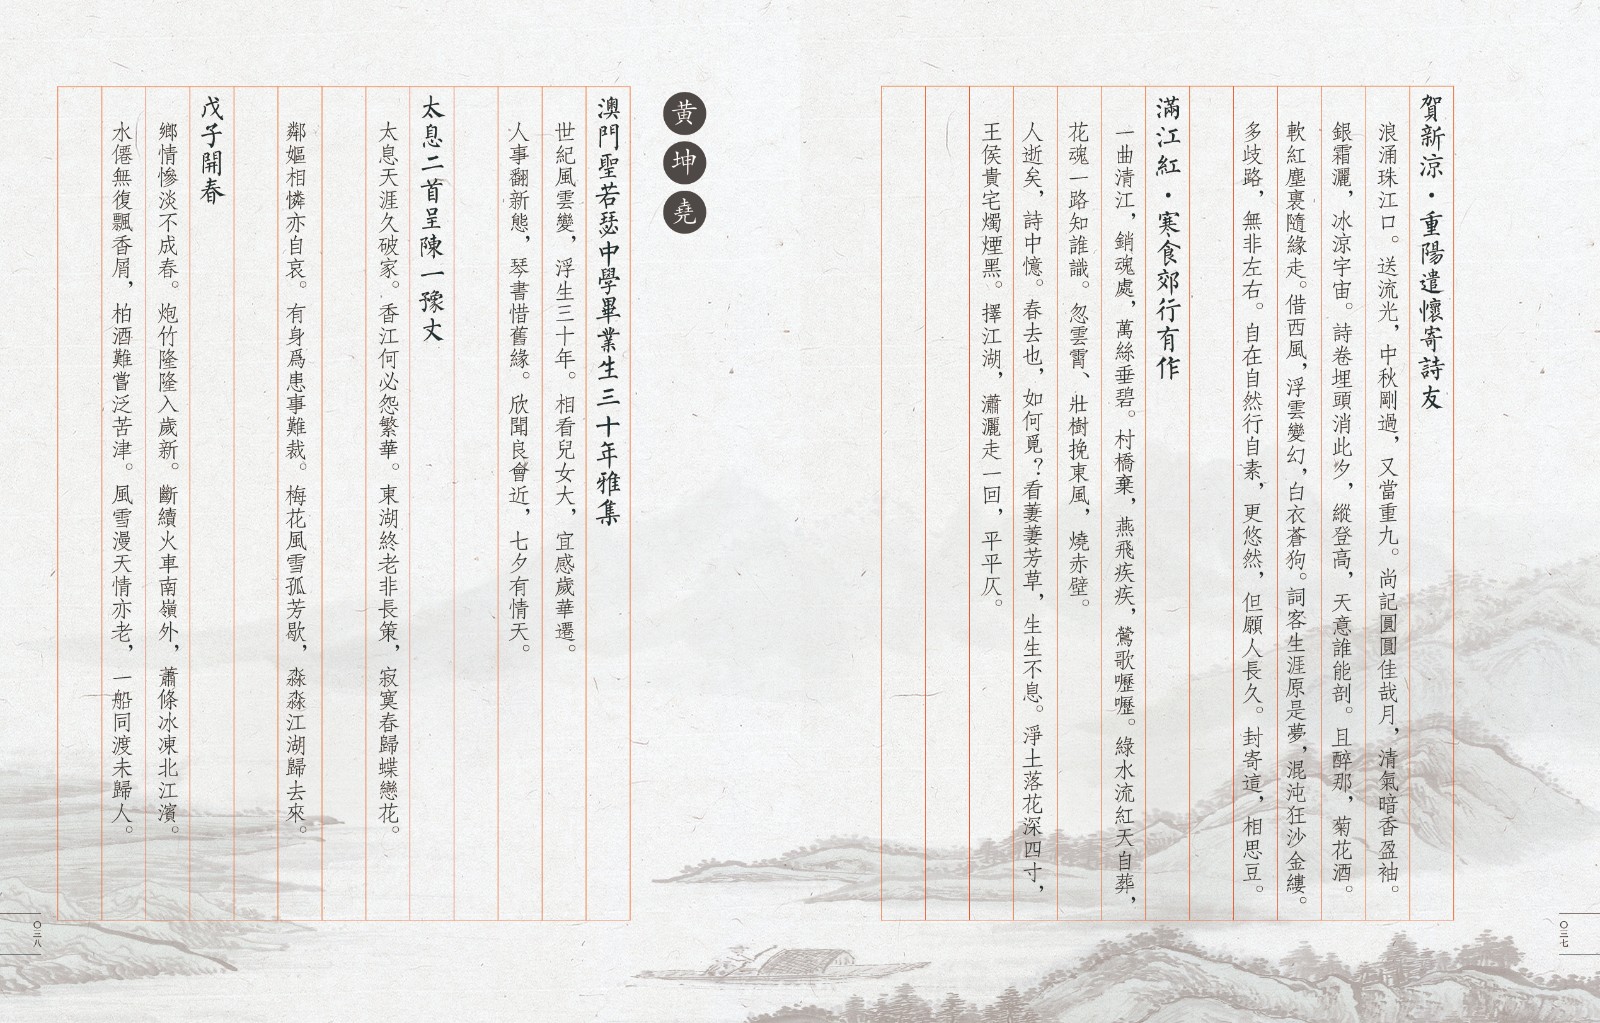 賀新涼・重陽遣懷寄詩友
浪涌珠江口。送流光，中秋剛過，又當重九。尚記圓圓佳哉月，清氣暗香盈袖。
銀霜灑，冰涼宇宙。詩卷埋頭消此夕，縱登高，天意誰能剖。且醉那，菊花酒。
軟紅塵裏隨緣走。借西風，浮雲變幻，白衣蒼狗。詞客生涯原是夢，混沌狂沙金縷。
多歧路，無非左右。自在自然行自素，更悠然，但願人長久。封寄這，相思豆。
滿江紅・寒食郊行有作
一曲清江，銷魂處，萬絲垂碧。村橋棄，燕飛疾疾，鶯歌嚦嚦。綠水流紅天自葬，
花魂一路知誰識。忽雲霄、壯樹挽東風，燒赤壁。
人逝矣，詩中憶。春去也，如何覓？看萋萋芳草，生生不息。淨土落花深四寸，
王侯貴宅燭煙黑。擇江湖，瀟灑走一回，平平仄。
〇三七
黃坤堯
澳門聖若瑟中學畢業生三十年雅集
世紀風雲變，浮生三十年。相看兒女大，宜感歲華遷。
人事翻新態，琴書惜舊緣。欣聞良會近，七夕有情天。
太息二首呈陳一豫丈
太息天涯久破家。香江何必怨繁華。東湖終老非長策，寂寞春歸蝶戀花。
鄰嫗相憐亦自哀。有身爲患事難裁。梅花風雪孤芳歇，淼淼江湖歸去來。
戊子開春
鄉情慘淡不成春。炮竹隆隆入歲新。斷續火車南嶺外，蕭條冰凍北江濱。
水僊無復飄香屑，柏酒難嘗泛苦津。風雪漫天情亦老，一船同渡未歸人。
〇三八